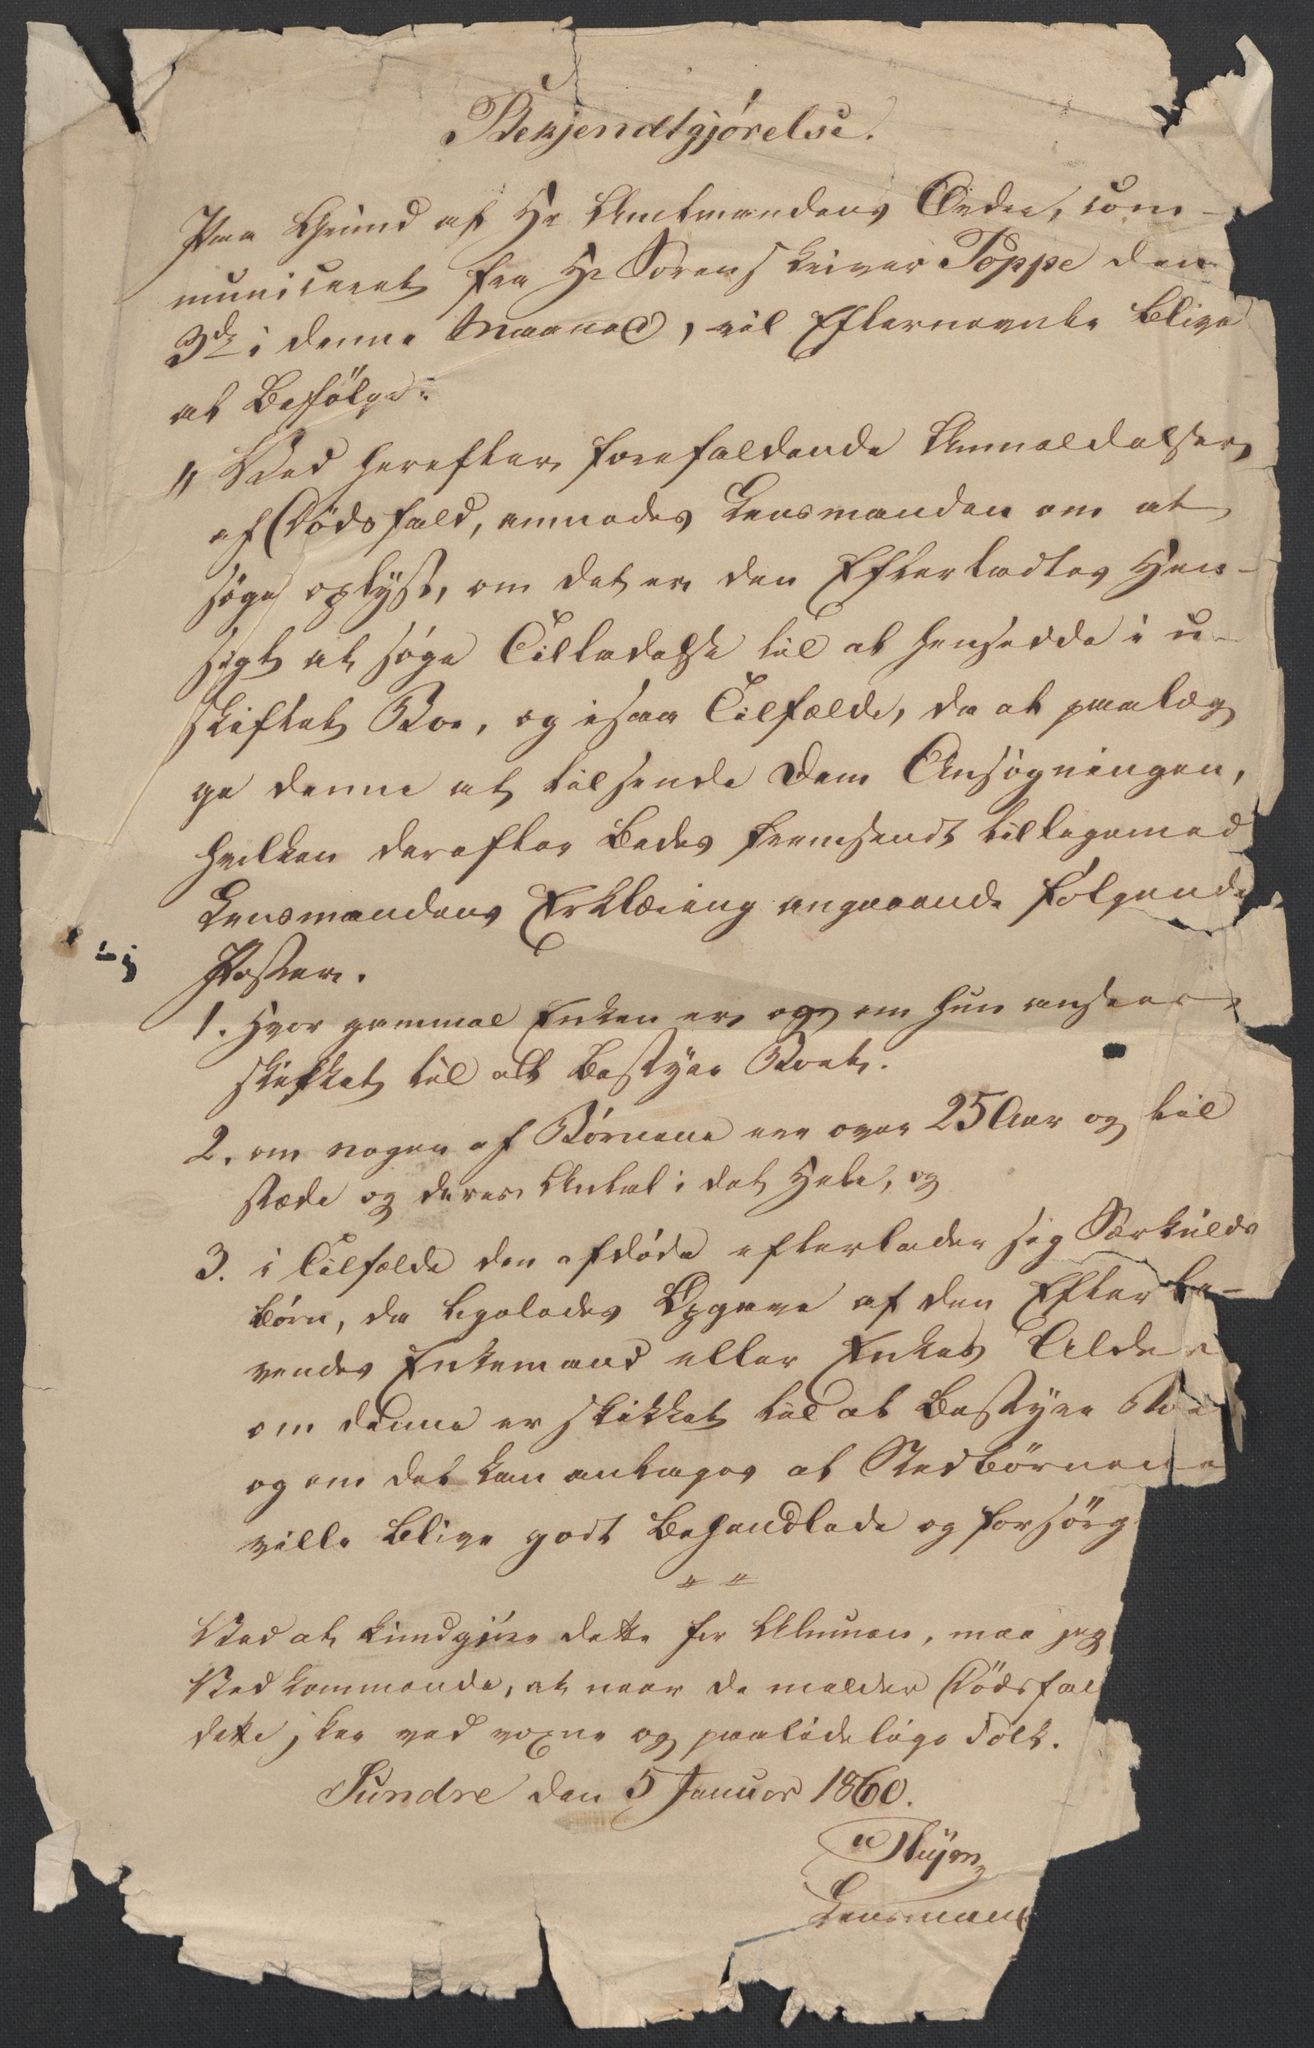 Bekjendtgjørelse.
Paa Grund af Hr Amtmandens Ordre, com-
municeret fra Hr Sorenskriver Poppe den
3die i denne Maaned, vil Efternevnte blive
at Befölge:
" Ved herefter forefaldende Anmeldelser
af Dödsfald, anmodes Lensmanden om at
söge oplyst, om det er den Efterladtes Hen-
sigt at søge Tilladelse til at hensidde i u-
skiftet Boe, og isaa Tilfælde, da at paalæg
ge denne at tilsende Dem Ansøgningen,
hvilken derefter bedes fremsendt tilligemed
Lensmandens Erklæring angaaende følgende
Poster.
1. Hvor gammel Enken er og om hun ansees
skikket til at bestyre Boet.
2. om nogen af Børnene ere over 25 Aar og til
stæde og deres Antal i det Hele, og
3. i Tilfælde den afdøde efterlader sig Særkulds
børn, da ligeledes Opgave af den Efterle-
vendes Enkemand eller Enkes Alder
om denne er skikket til at bestyre Boe
og om det kan antages at Stedbørnene
ville blive godt behandlede og forsörg
" "
Ved at kundgjöre dette for Almuen, maa jeg
Vedkommende, at naar de melder Dödsfal
dette skee ved voxne og paalidelige Folk.
Sundre den 5 Januar 1860.
Thyrn
Lensmand